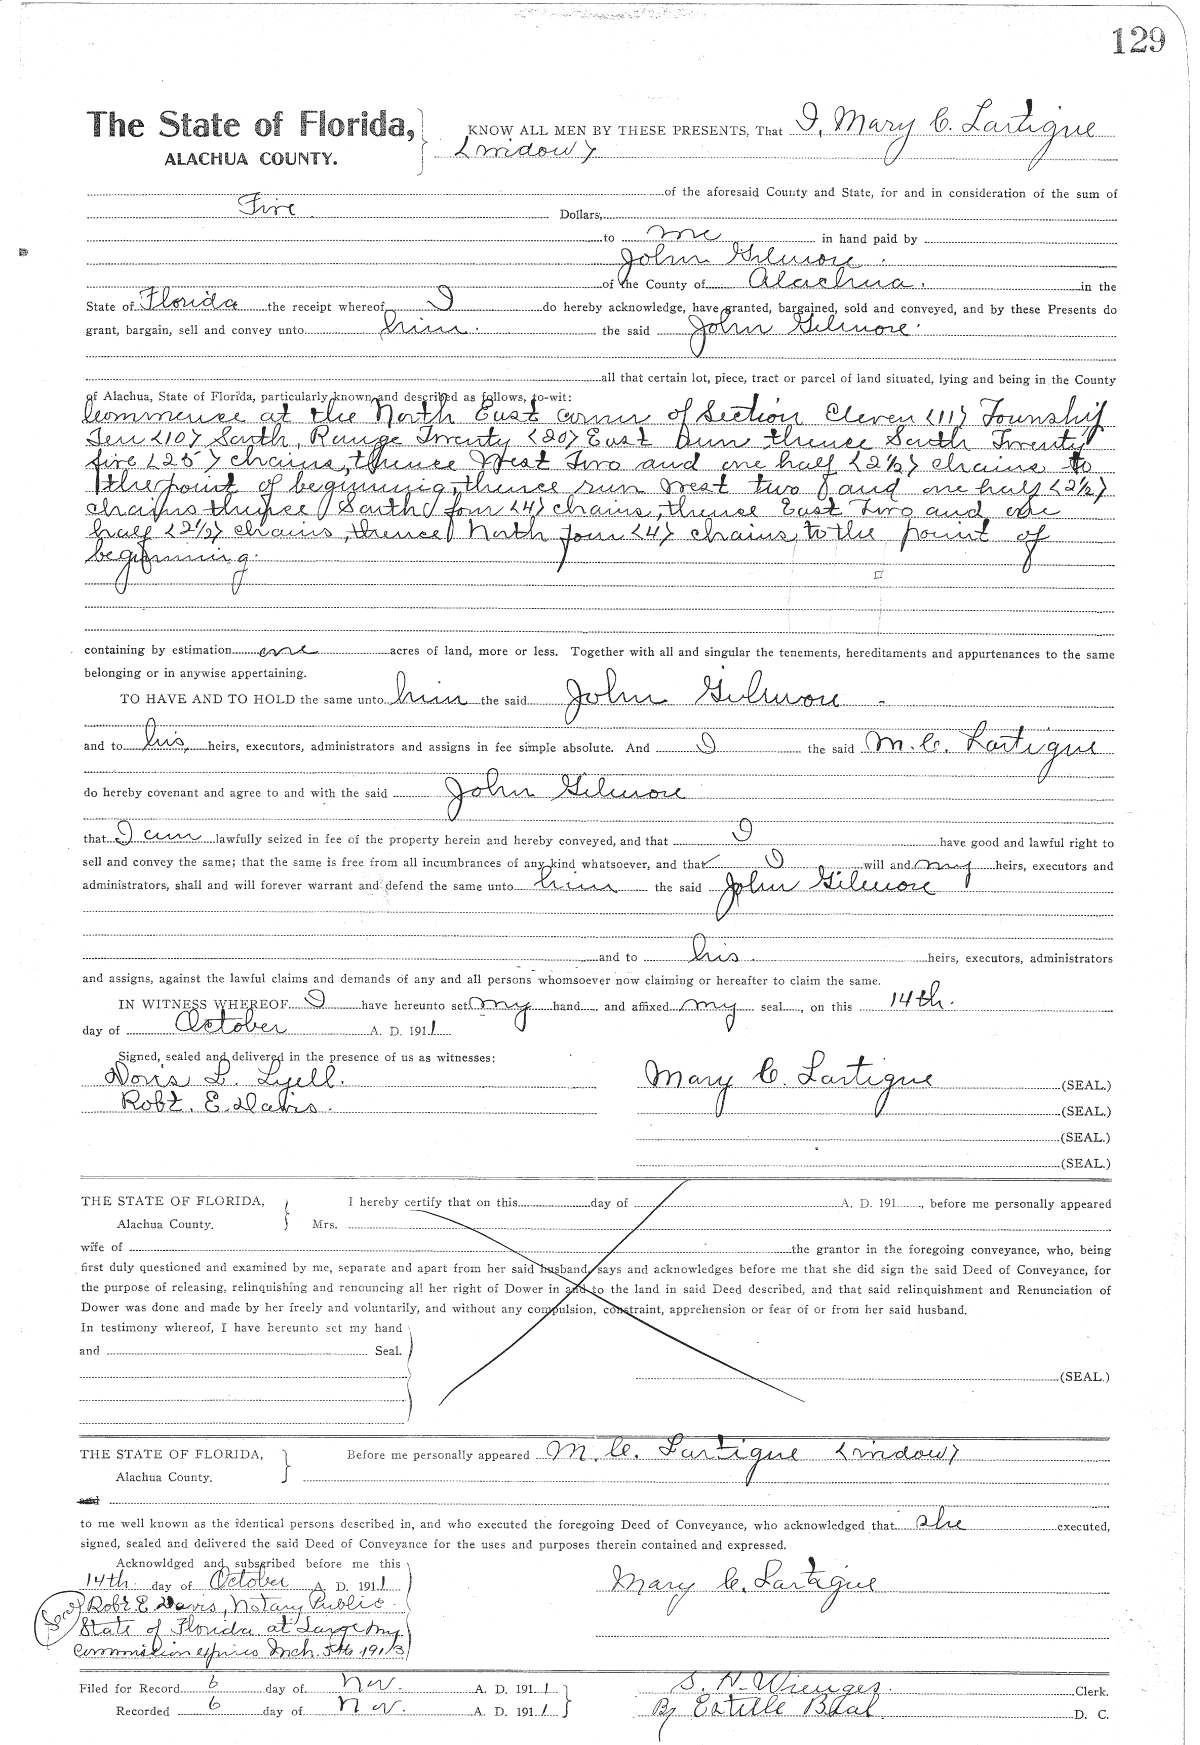 129
The State of Florida,
ALACHUA COUNTY.
KNOW ALL MEN BY THESE PRESENTS, That I, Mary C. Lartigue
<widow>
of the aforesaid County and State, for and in consideration of the sum of
Five Dollars,
to me in hand paid by
John Gilmore.
of the County of Alachua. in the
State of Florida the receipt whereof I do hereby acknowledge, have granted, bargained, sold and conveyed, and by these Presents do
grant, bargain, sell and convey unto him. the said John Gilmore.
all that certain lot, piece, tract or parcel of land situated, lying and being in the County
of Alachua, State of Florida, particularly known and described as follows, to-wit:
Commence at the North East corner of Section Eleven <11> Township
Ten <10> South, Range Twenty <20> East Run thence South Twenty
five <25> chains, thence West Two and one half <2½> chains to
the point of beginning, thence run West two and one half <2½>
chains thence South four <4> chains, thence East Two and one
half <2½> chains, thence North four <4> chains, to the point of
beginning.
containing by estimation one acres of land, more or less. Together with all and singular the tenements, hereditaments and appurtenances to the same
belonging or in anywise appertaining.
TO HAVE AND TO HOLD the same unto him the said John Gilmore
and to his, heirs, executors, administrators and assigns in fee simple absolute. And I the said M. C. Lartigue
do hereby covenant and agree to and with the said John Gilmore
that I am lawfully seized in fee of the property herein and hereby conveyed, and that I have good and lawful right to
sell and convey the same; that the same is free from all incumbrances of any kind whatsoever, and that I will and my heirs, executors and
administrators, shall and will forever warrant and defend the same unto him the said John Gilmore
and to his heirs, executors, administrators
and assigns, against the lawful claims and demands of any and all persons whomsoever now claiming or hereafter to claim the same.
IN WITNESS WHEREOF I have hereunto set my hand and affixed my seal, on this 14th.
day of October A. D. 1911
Signed, sealed and delivered in the presence of us as witnesses:
Doris L. Lyell. Mary C. Lartigue (SEAL.)
Robt. E. Davis. (SEAL.)
(SEAL.)
(SEAL.)
THE STATE OF FLORIDA,
Alachua County.
I hereby certify that on this day of A. D. 191 , before me personally appeared
Mrs.
wife of the grantor in the foregoing conveyance, who, being
first duly questioned and examined by me, separate and apart from her said husband, says and acknowledges before me that she did sign the said Deed of Conveyance, for
the purpose of releasing, relinquishing and renouncing all her right of Dower in and to the land in said Deed described, and that said relinquishment and Renunciation of
Dower was done and made by her freely and voluntarily, and without any compulsion, constraint, apprehension or fear of or from her said husband.
In testimony whereof, I have hereunto set my hand
and Seal.
(SEAL.)
THE STATE OF FLORIDA,
Alachua County.
Before me personally appeared M. C. Lartigue <widow>
and
to me well known as the identical persons described in, and who executed the foregoing Deed of Conveyance, who acknowledged that she executed,
signed, sealed and delivered the said Deed of Conveyance for the uses and purposes therein contained and expressed.
Acknowldged and subscribed before me this
14th. day of October A. D. 1911 Mary C. Lartigue
Robt E Davis, Notary Public.
State of Florida at Large My
Commission expires Mch. 5th 1913
Filed for Record 6 day of Nov. A. D. 1911 S. H. Wienges. Clerk.
Recorded 6 day of Nov. A. D. 1911 By Estille Beal D. C.